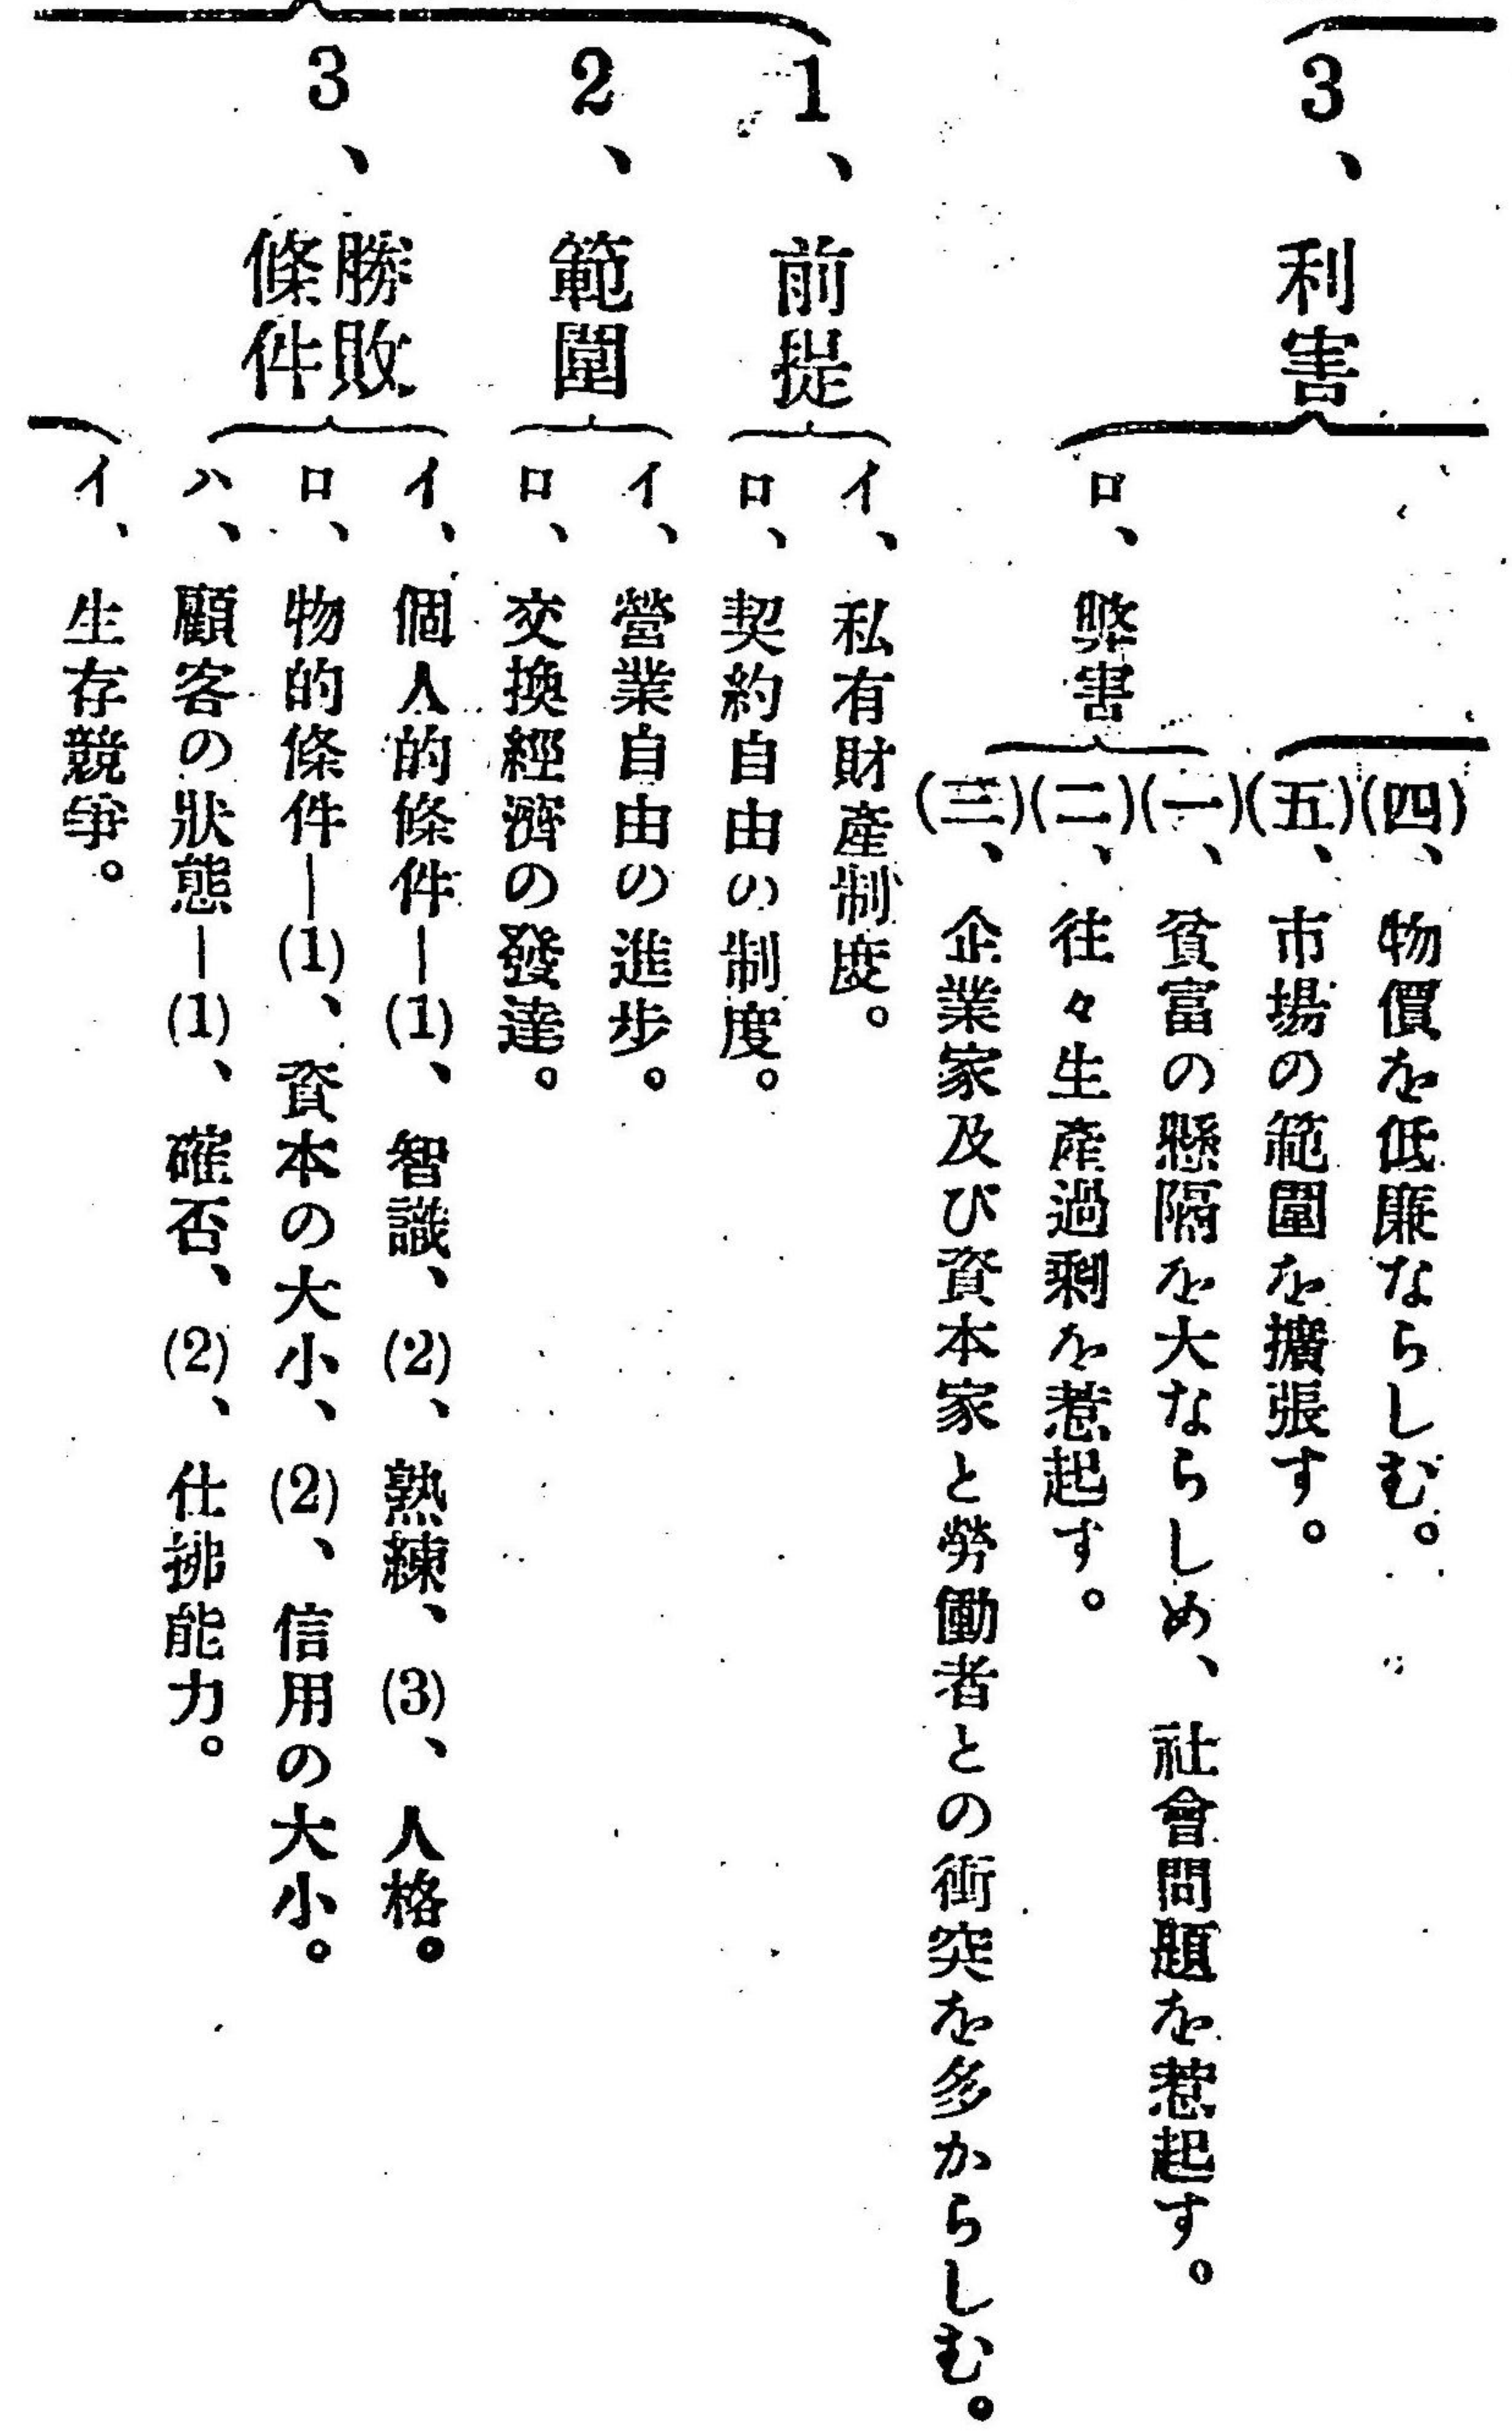 3、利害
(四)、物價を低廉ならしむ。
(五)、市場の範圍を擴張す。
ロ、弊害
(一)、貧富の懸隔を大ならしめ、社會問題を惹起す。
(二)、往々生產過剩を惹起す。
(三)、企業家及び資本家と勞働者との衝突を多からしむ。
1、前提
イ、私有財產制度。
ロ、契約自由の制度。
2、範圍
イ、營業自由の進步。
ロ、交換經濟の發達。
3、勝敗
條件
イ、個人的條件―(1)、智識、(2)、熟練、(3)、人格。
ロ、物的條件―(1)、資本の大小、(2)、信用の大小。
ハ、顧客の狀態―(1)、確否、(2)、仕拂能力。
イ、生存競爭。